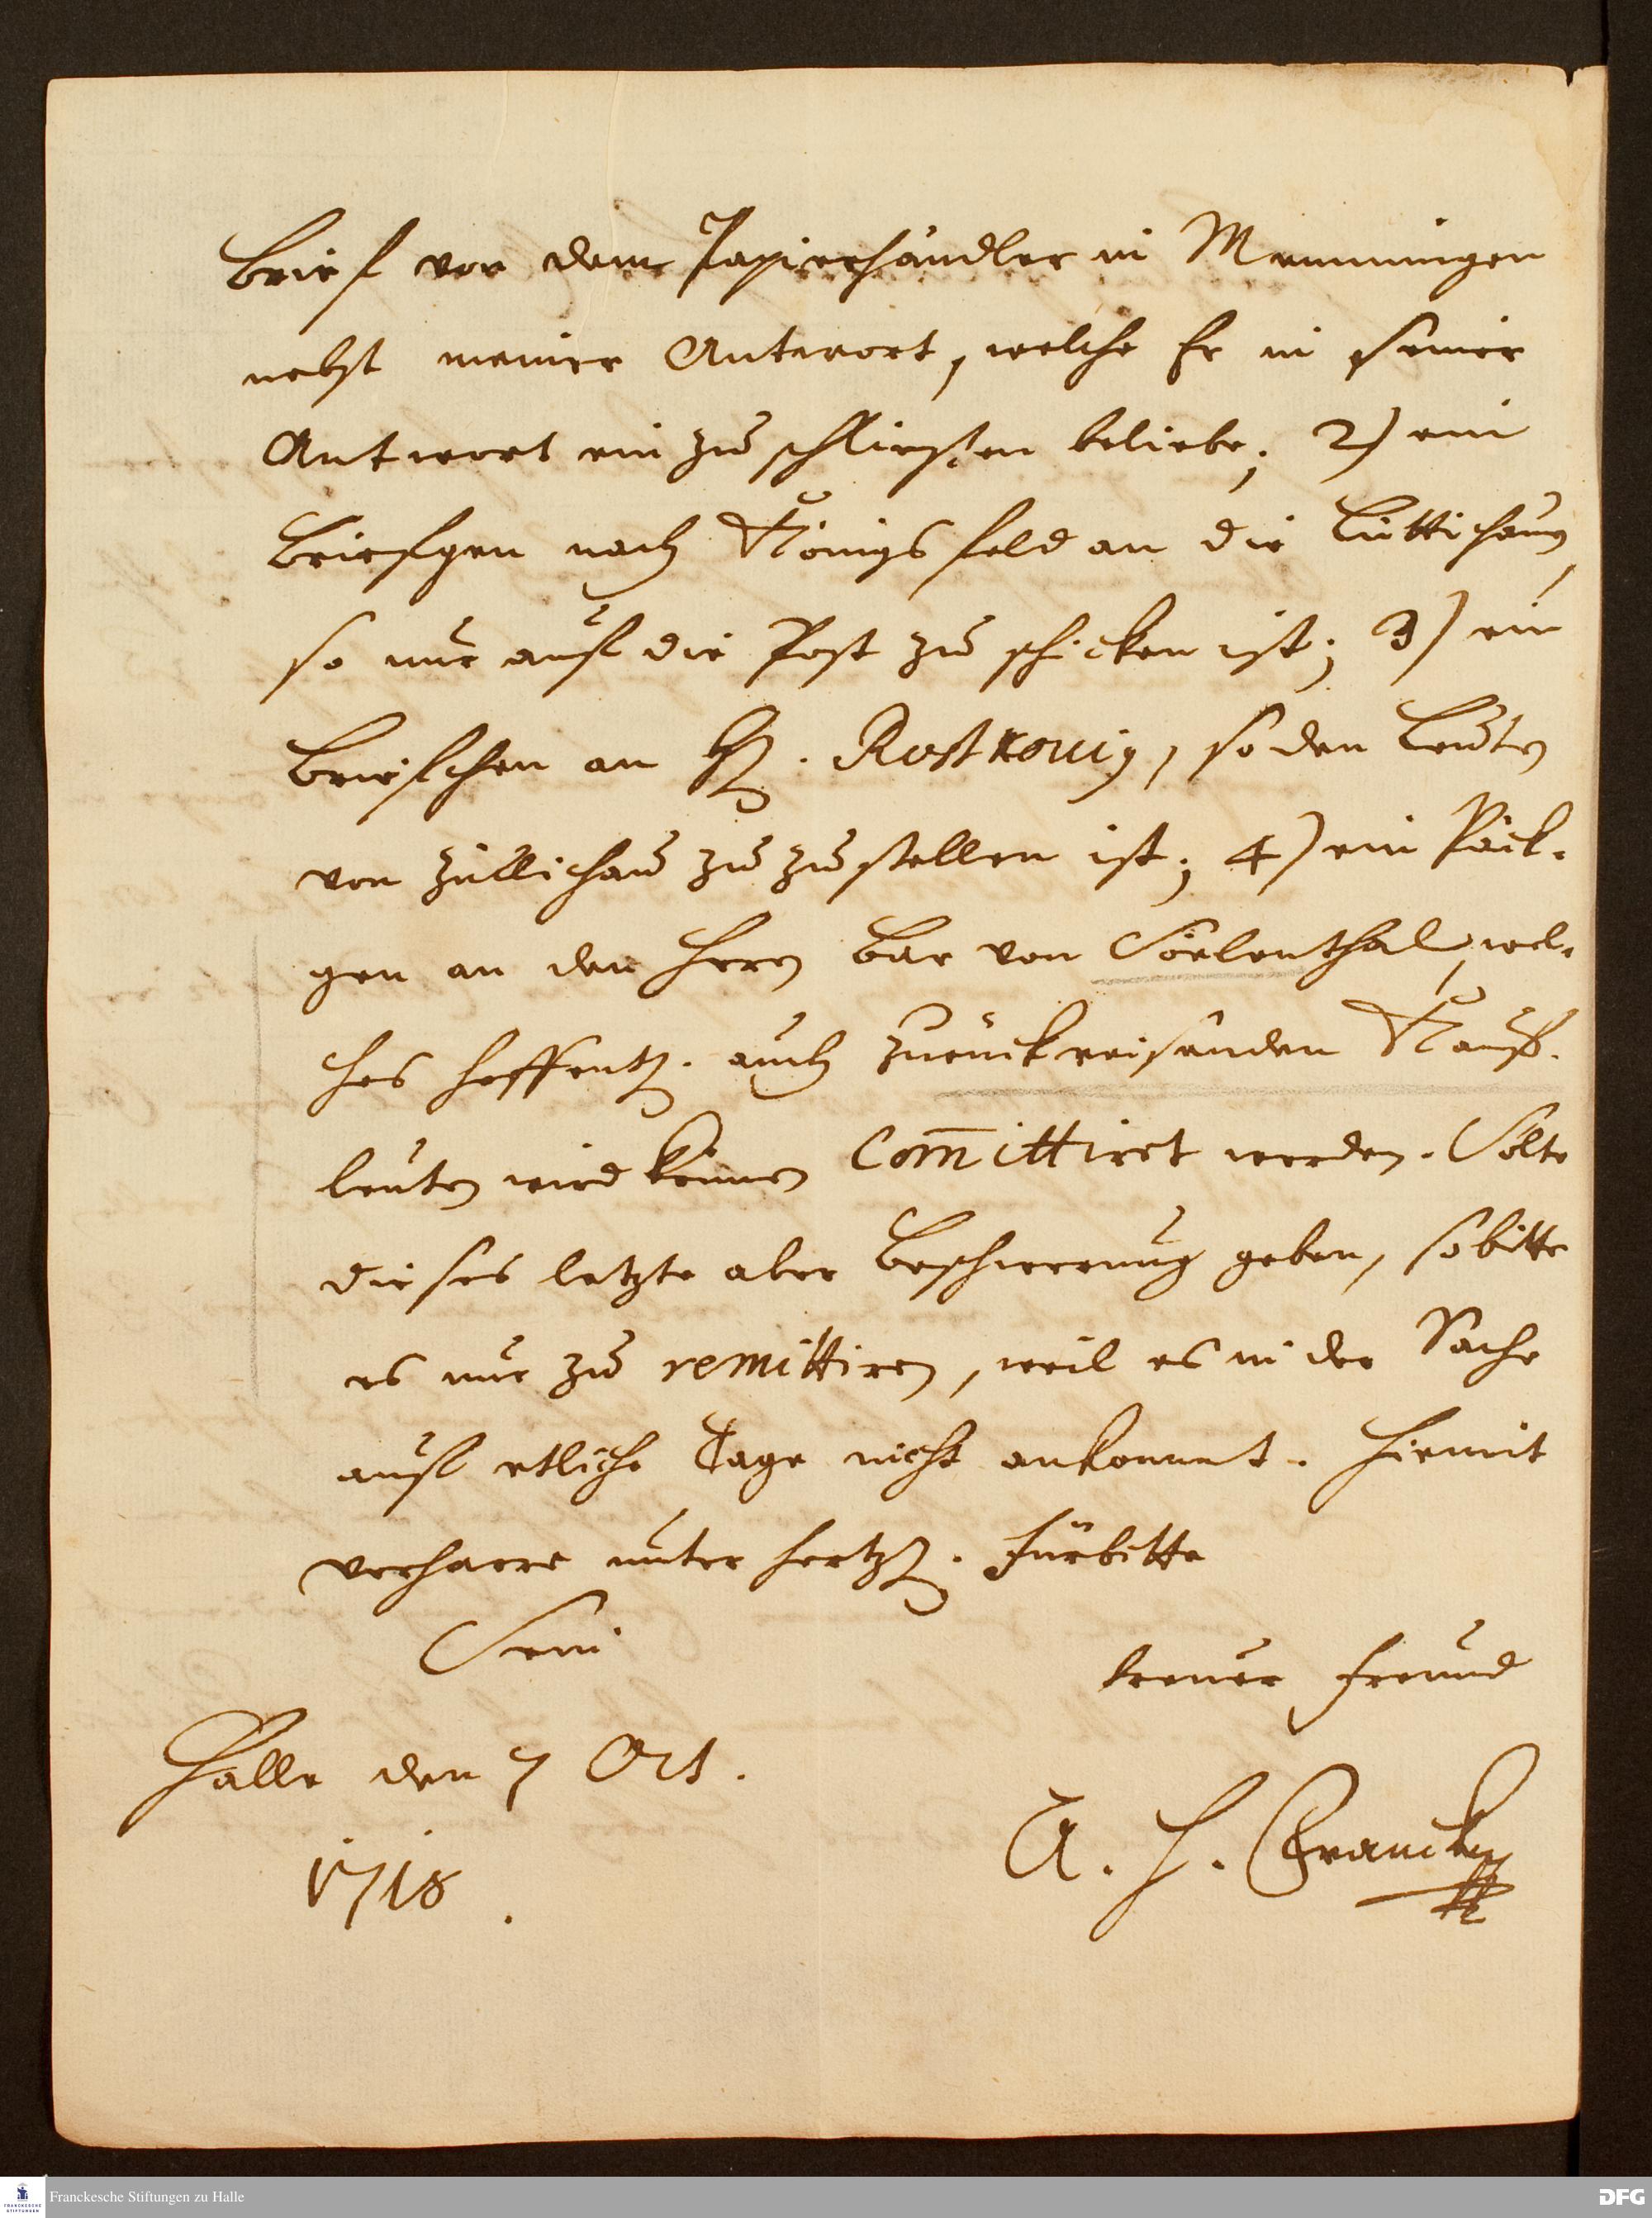 Brief vor dem Papierhändler in Memmingen
nebst meiner Antwort, welche Er in seiner
Antwort ein zu schliessen beliebe; 2) ein
Briefgen nach Königsfeld an die Lüttichauin,
so nur auf die Post zu schicken ist; 3) ein
Briefchen an H. so den Leuten
von Züllichau zu zustellen ist; 4) ein Päck-
gen an den Herrn Bar von Söelenthal, wel-
ches hoffentl. auch zurückreisenden Kauff-
leuten wird können Com̄ittiret werden. Solte
dieses letzte aber Beschwerung geben, so bitte
es nur zu remittiren, weil es in der Sache
auf etliche Tage nicht ankommt. Hiermit
verharre unter hertzl. Fürbitte
Sein
treuer Freund
Halle den 7 Oct.
A. H. Francke
1718.
Franckesche Stiftungen zu Halle
FRANCKESCHE STIFTUNGEN
DFG